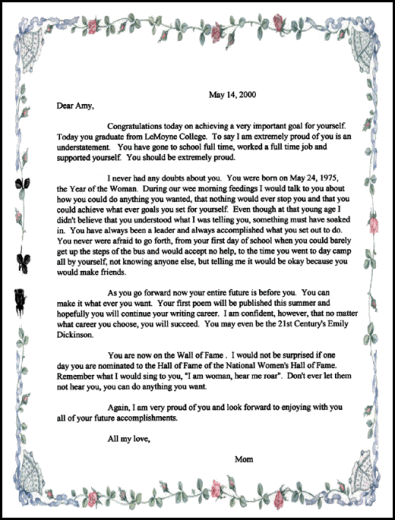 May 14, 2000
Dear Amy,
Congratulations today on achieving a very important goal for yourself.
Today you graduate from LeMoyne College. To say I am extremely proud of you is an
understatement. You have gone to school full time, worked a full time job and
supported yourself. You should be extremely proud.
I never had any doubts about you. You were born on May 24, 1975,
the Year of the Woman. During our wee morning feedings I would talk to you about
how you could do anything you wanted, that nothing would ever stop you and that you
could achieve what ever goals you set for yourself. Even though at that young age I
didn't believe that you understood what I was telling you, something must have soaked
in. You have always been a leader and always accomplished what you set out to do.
You never were afraid to go forth, from your first day of school when you could barely
get up the steps of the bus and would accept no help, to the time you went to day camp
all by yourself, not knowing anyone else, but telling me it would be okay because you
would make friends.
As you go forward now your entire future is before you. You can
make it what ever you want. Your first poem will be published this summer and
hopefully you will continue your writing career. I am confident, however, that no matter
what career you choose, you will succeed. You may even be the 21st Century's Emily
Dickinson.
You are now on the Wall of Fame . I would not be surprised if one
day you are nominated to the Hall of Fame of the National Women's Hall of Fame.
Remember what I would sing to you, "I am woman, hear me roar". Don't ever let them
not hear you, you can do anything you want.
Again, I am very proud of you and look forward to enjoying with you
all of your future accomplishments.
All my love,
Mom